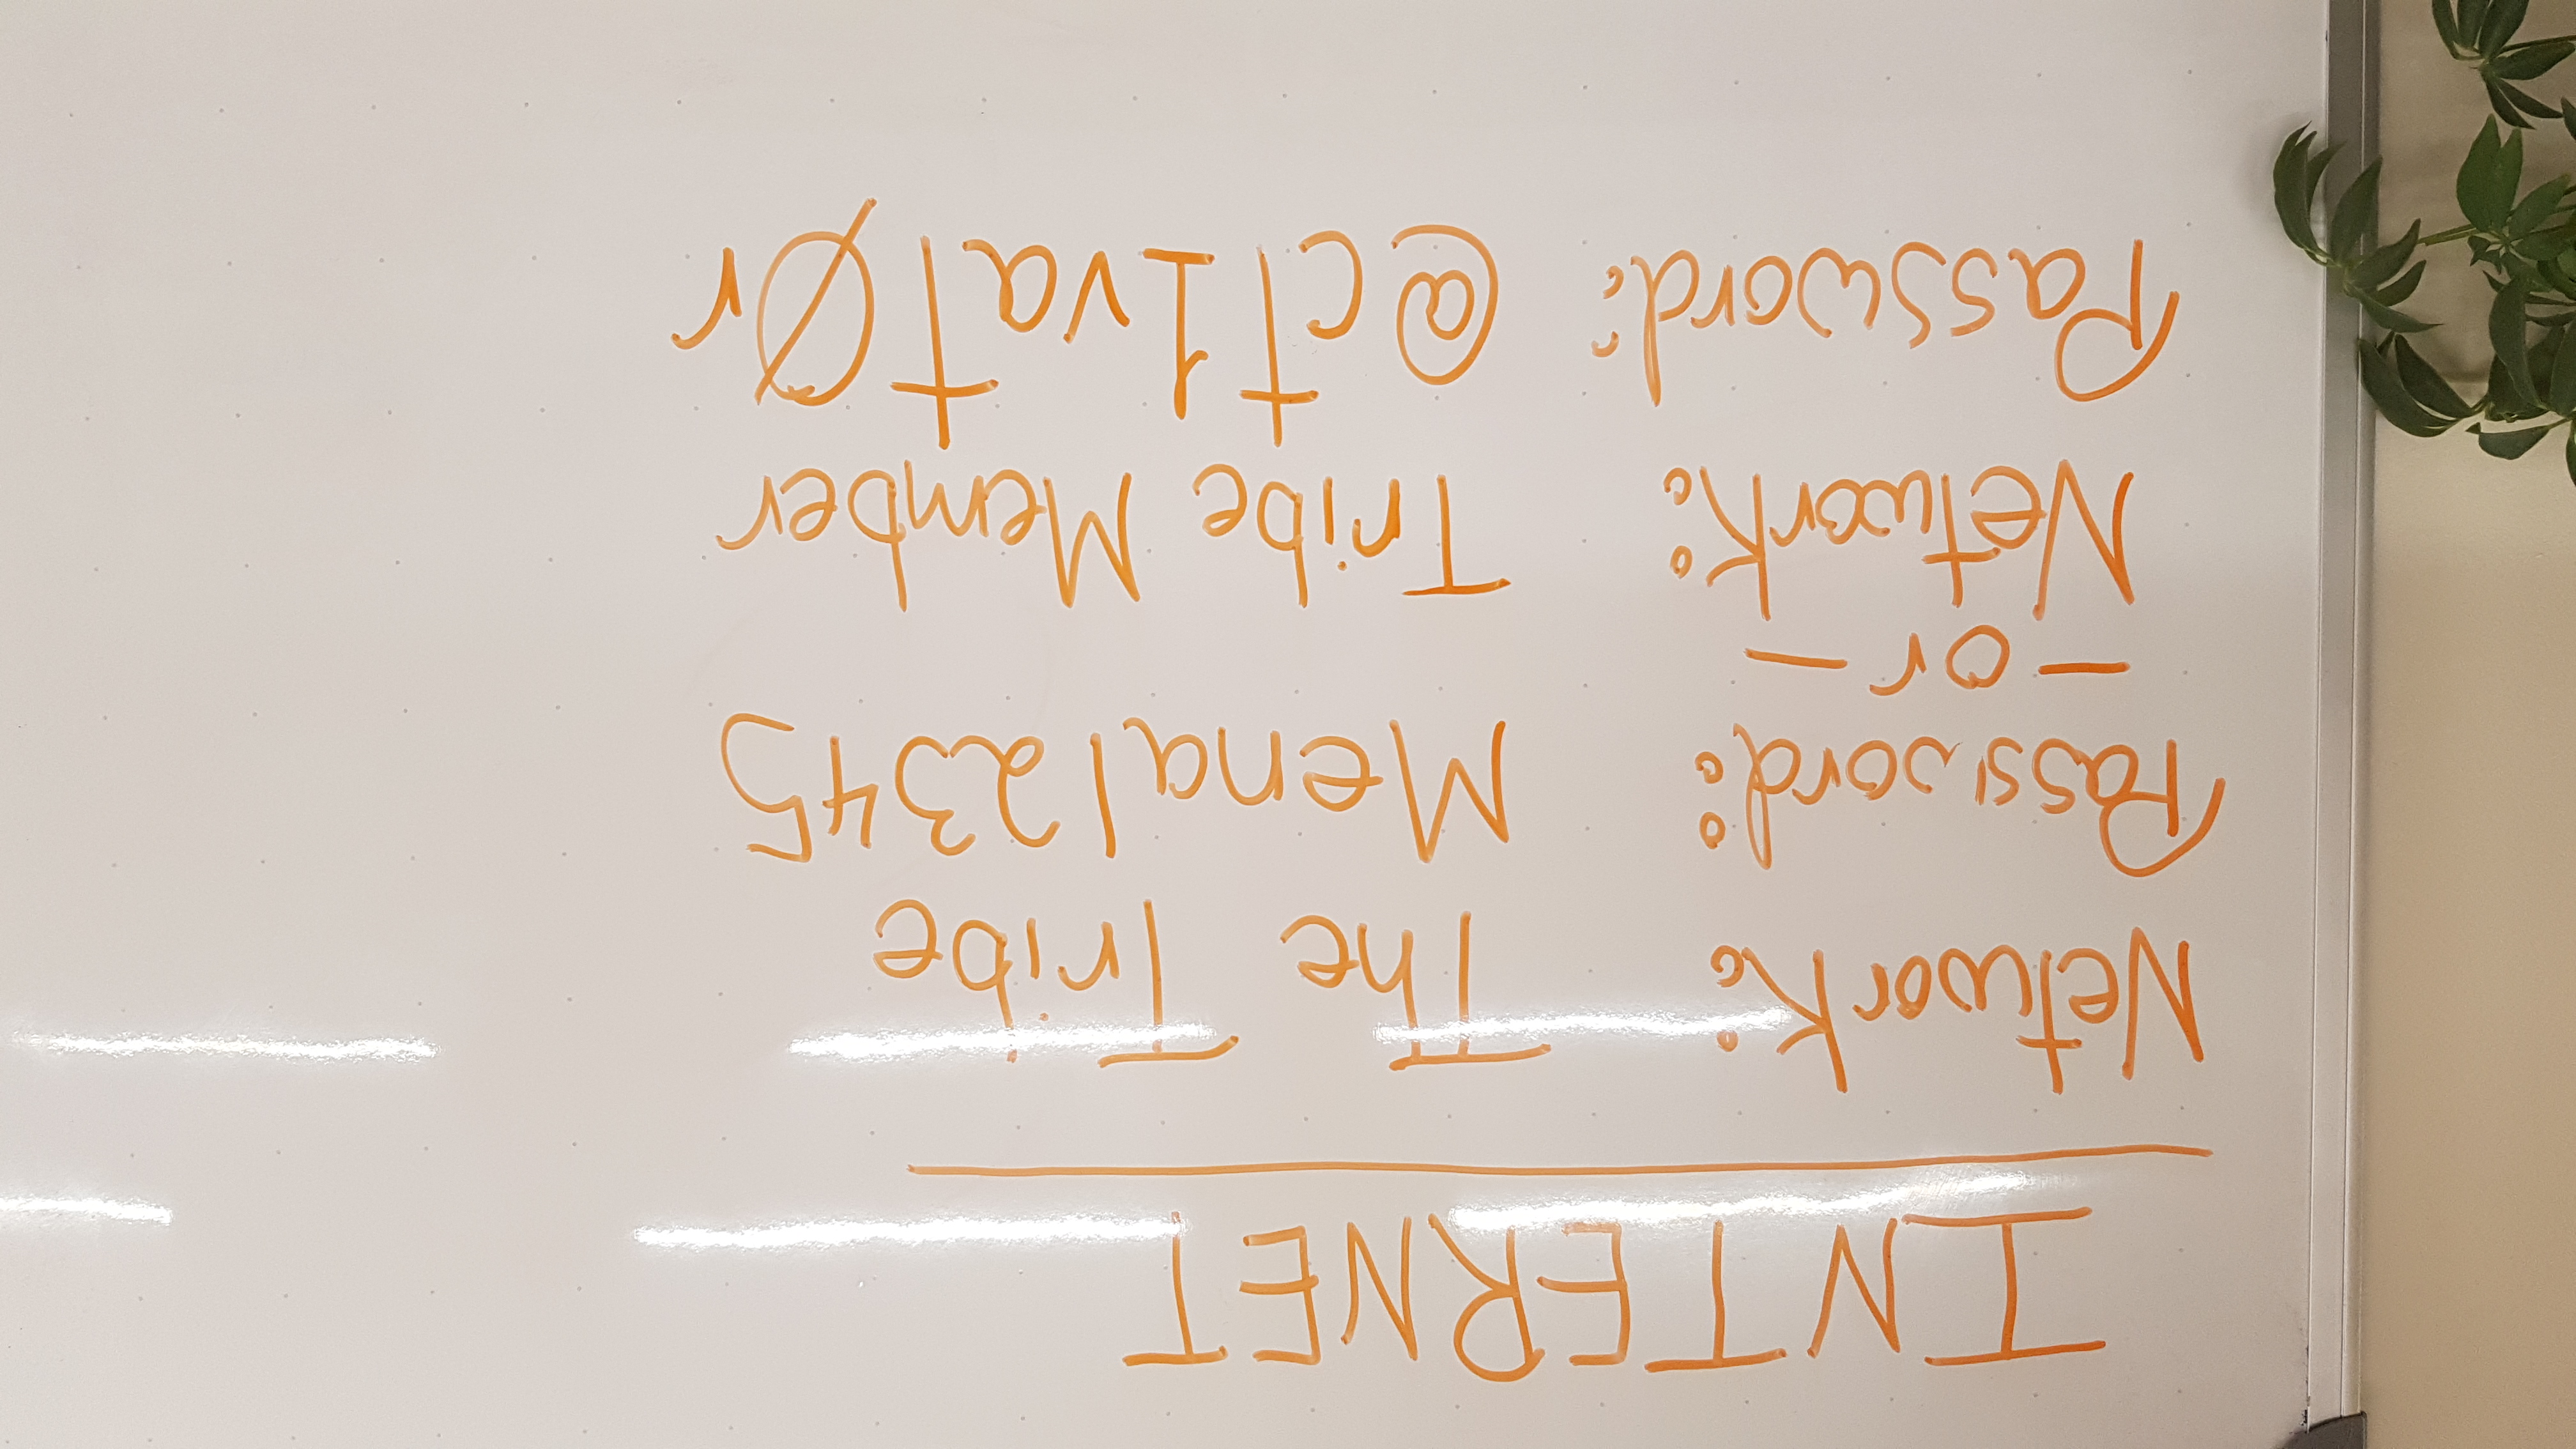 INTERNET
Network: The Tribe
Password: Mena12345
- or -
Network: Tribe Member
Password: @ct1vat0r